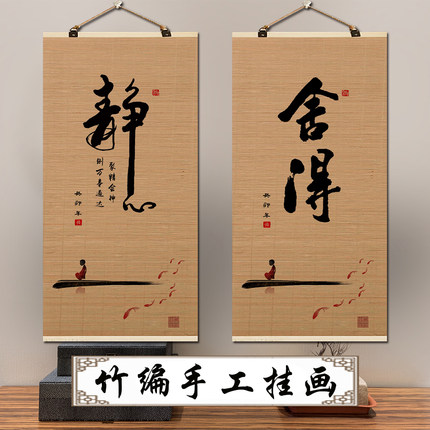 静心
聚精会神
则万事通达
癸卯年
舍得
癸卯年
竹编手工挂画